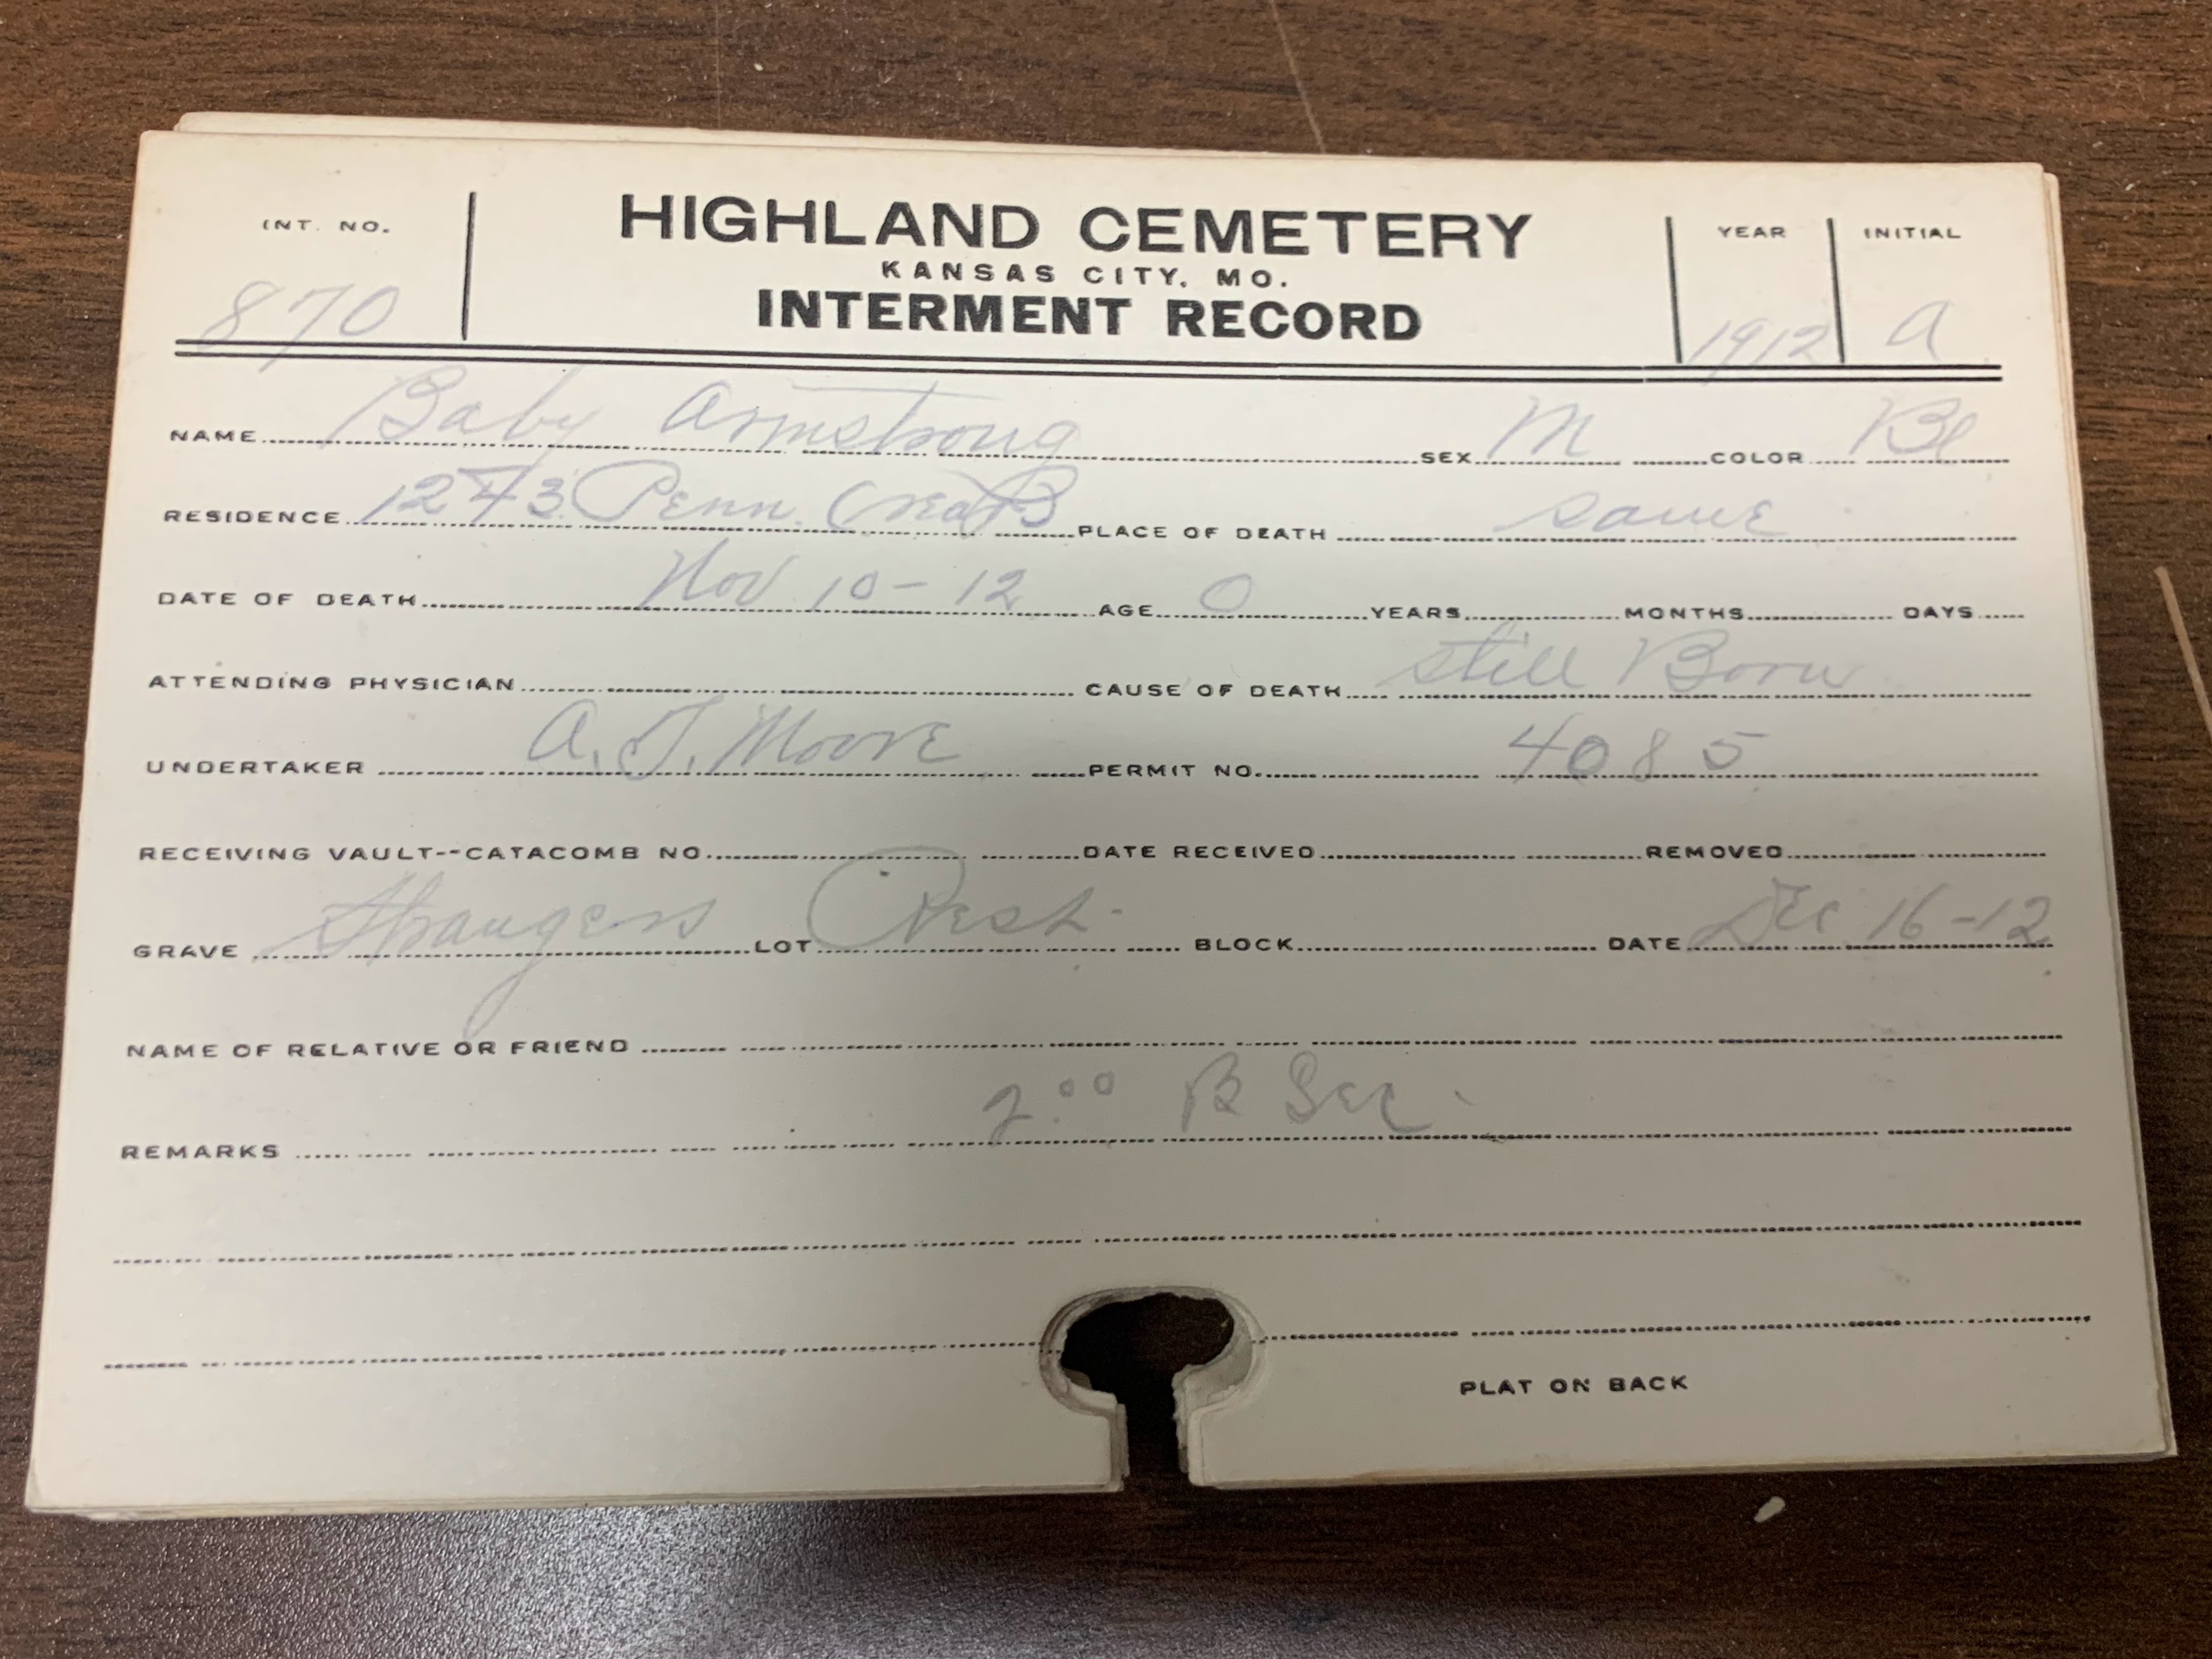 INT. NO. HIGHLAND CEMETERY YEAR INITIAL
KANSAS CITY, MO.
870 INTERMENT RECORD 1912 A
NAME Baby Armstrong SEX M COLOR Bl
RESIDENCE 1243 Penn. PLACE OF DEATH same
DATE OF DEATH Nov 10-12 AGE 0 YEARS MONTHS DAYS
ATTENDING PHYSICIAN CAUSE OF DEATH still Born
UNDERTAKER A. T. Moore PERMIT NO. 4085
RECEIVING VAULT--CATACOMB NO. DATE RECEIVED REMOVED
GRAVE Strangers LOT Rest BLOCK DATE Dec 16-12
NAME OF RELATIVE OR FRIEND
REMARKS 2.00 B Sec
PLAT ON BACK